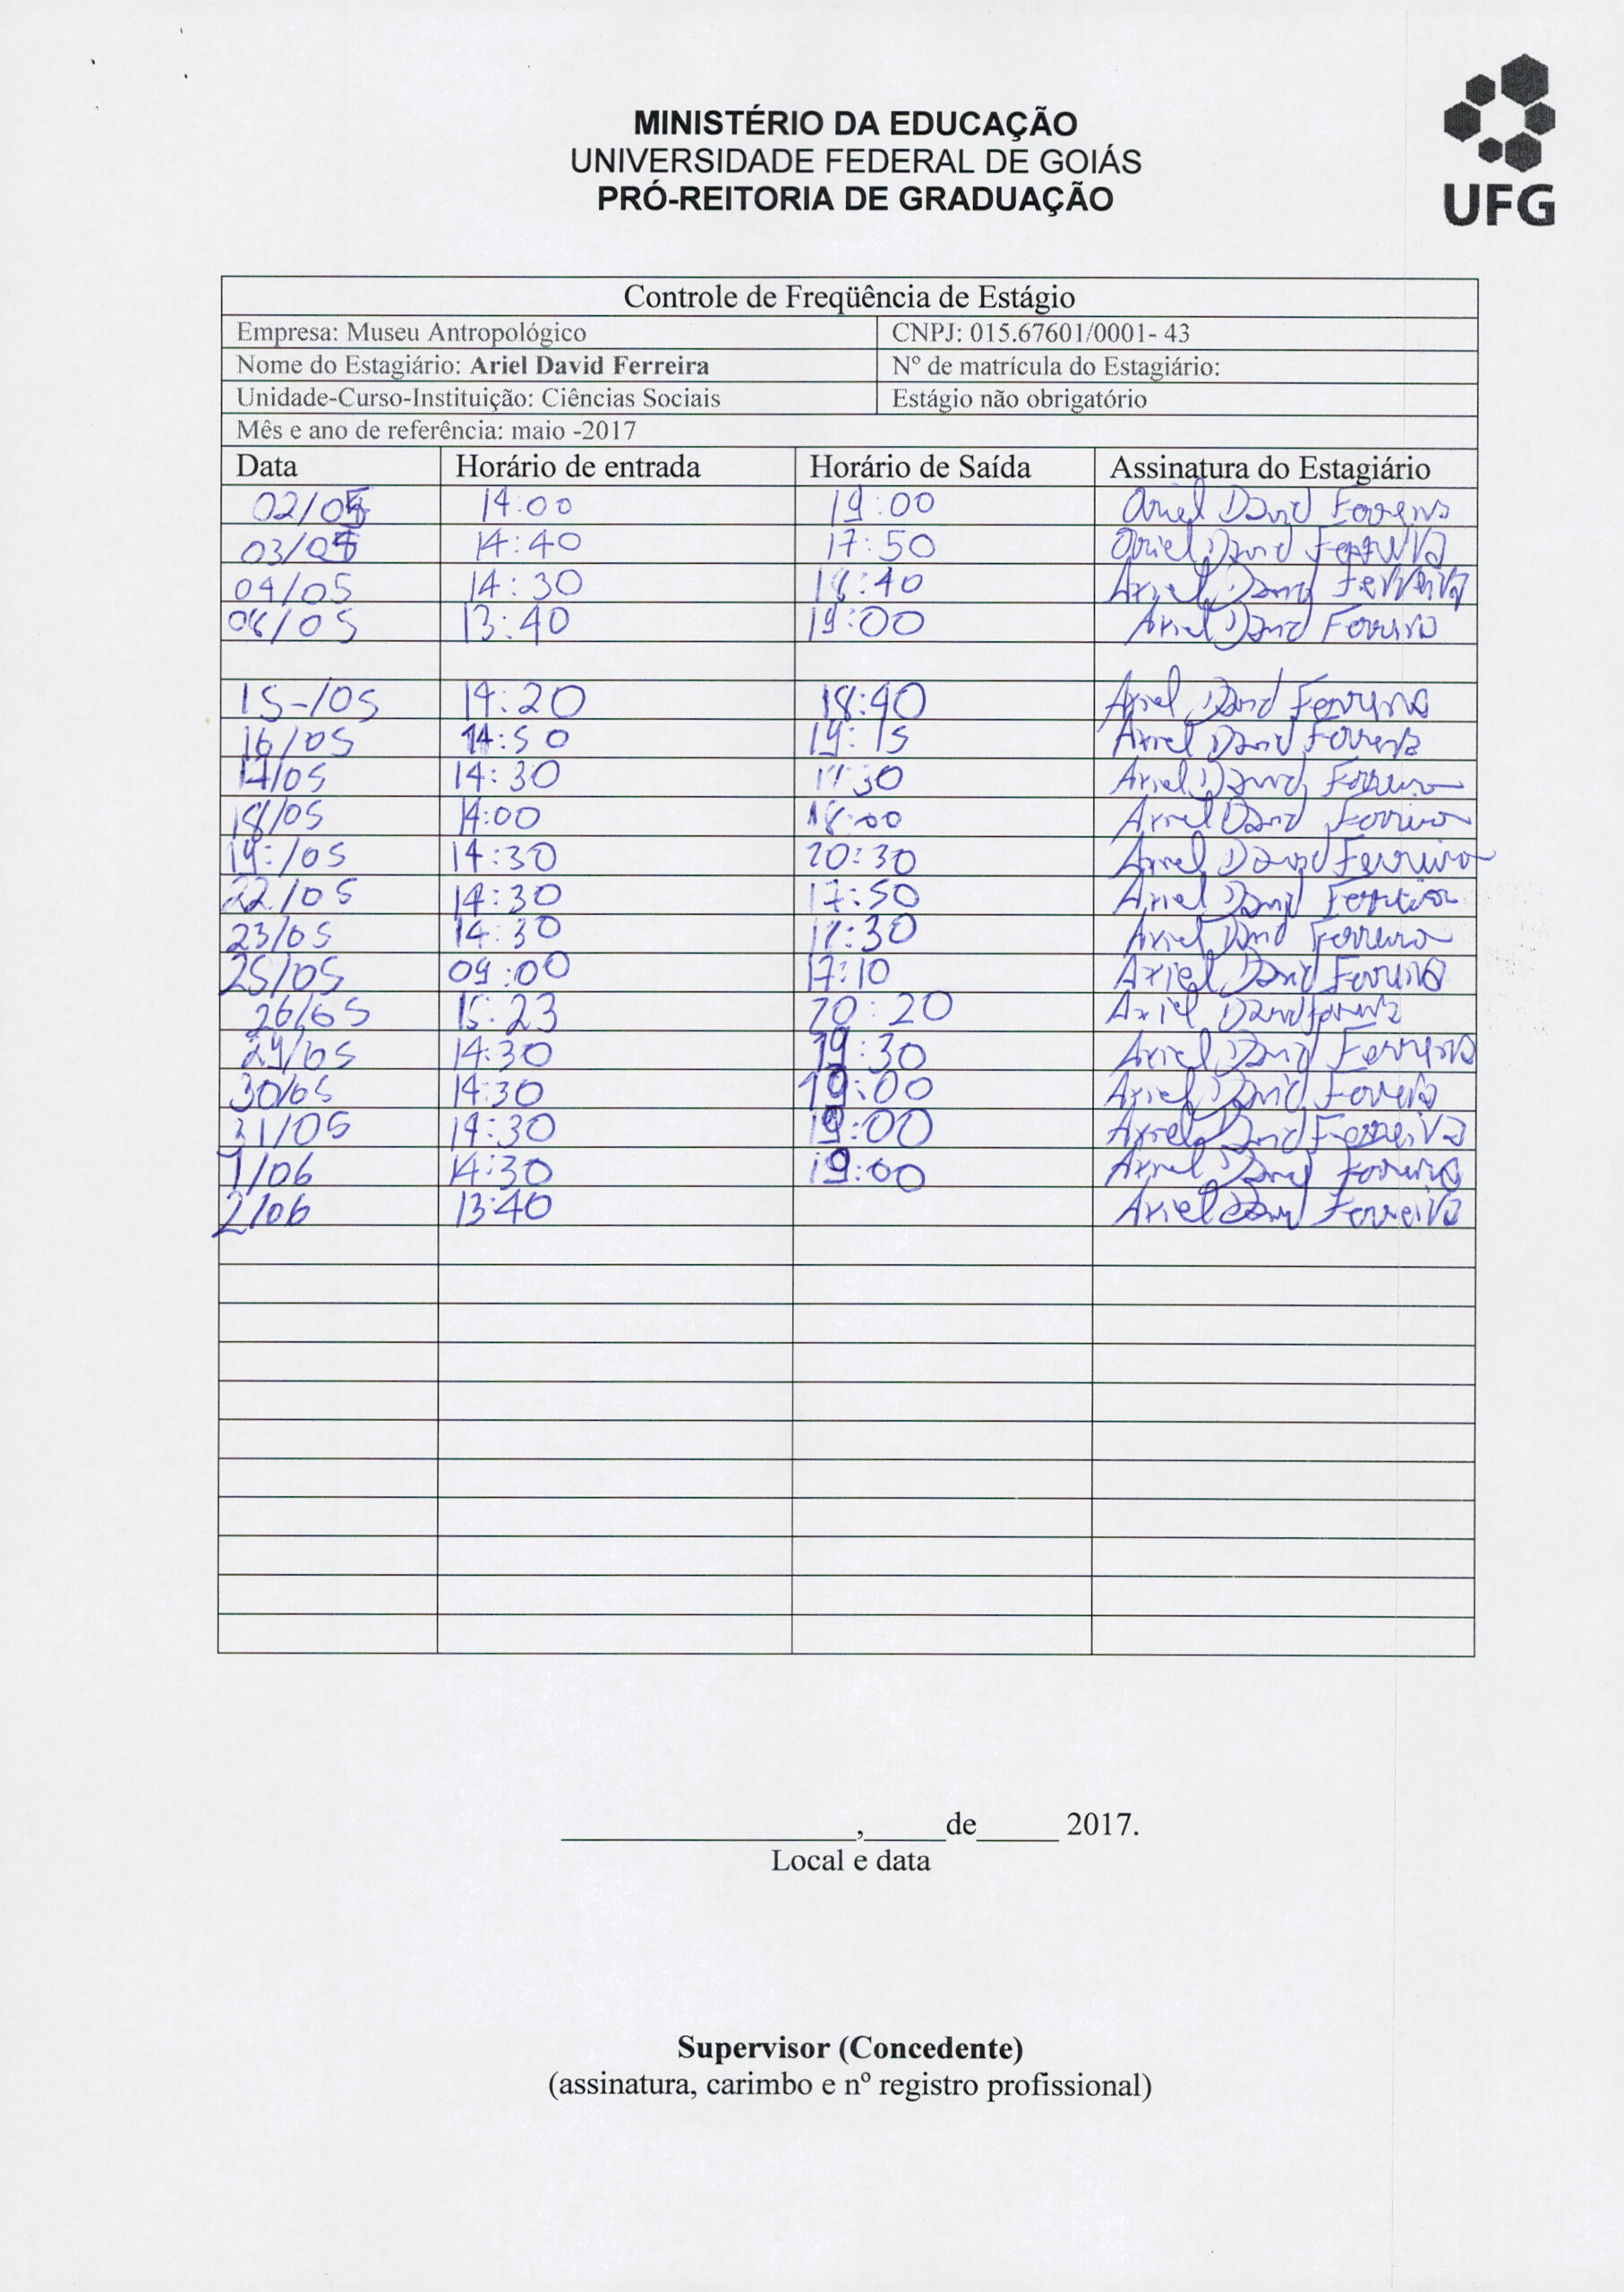 MINISTÉRIO DA EDUCAÇÃO
UNIVERSIDADE FEDERAL DE GOIÁS
PRÓ-REITORIA DE GRADUAÇÃO
UFG
Controle de Freqüência de Estágio
Empresa: Museu Antropológico CNPJ: 015.67601/0001- 43
Nome do Estagiário: Ariel David Ferreira Nº de matrícula do Estagiário:
Unidade-Curso-Instituição: Ciências Sociais Estágio não obrigatório
Mês e ano de referência: maio -2017
Data Horário de entrada Horário de Saída Assinatura do Estagiário
02/05 14:00 19:00 Ariel David Ferreira
03/05 14:40 17:50 Ariel David Ferreira
04/05 14:30 18:40 Ariel David Ferreira
13:40 19:00 Ariel David Ferreira
15-/05 14:20 18:40 Ariel David Ferreira
16/05 14:50 19:15 Ariel David Ferreira
17/05 14:30 Ariel David Ferreira
18/05 14:00 18:00 Ariel David Ferreira
19:/05 14:30 20:30 Ariel David Ferreira
22/05 14:30 17:50 Ariel David Ferreira
23/05 14:30 Ariel David Ferreira
25/05 09:00 17:10 Ariel David Ferreira
26/05 15:23 20:20 Ariel David Ferreira
29/05 14:30 19:30 Ariel David Ferreira
30/05 14:30 19:00 Ariel David Ferreira
31/05 14:30 19:00 Ariel David Ferreira
1/06 14:30 19:00 Ariel David Ferreira
2/06 13:40 Ariel David Ferreira
__________________,_____de_____ 2017.
Local e data
Supervisor (Concedente)
(assinatura, carimbo e nº registro profissional)